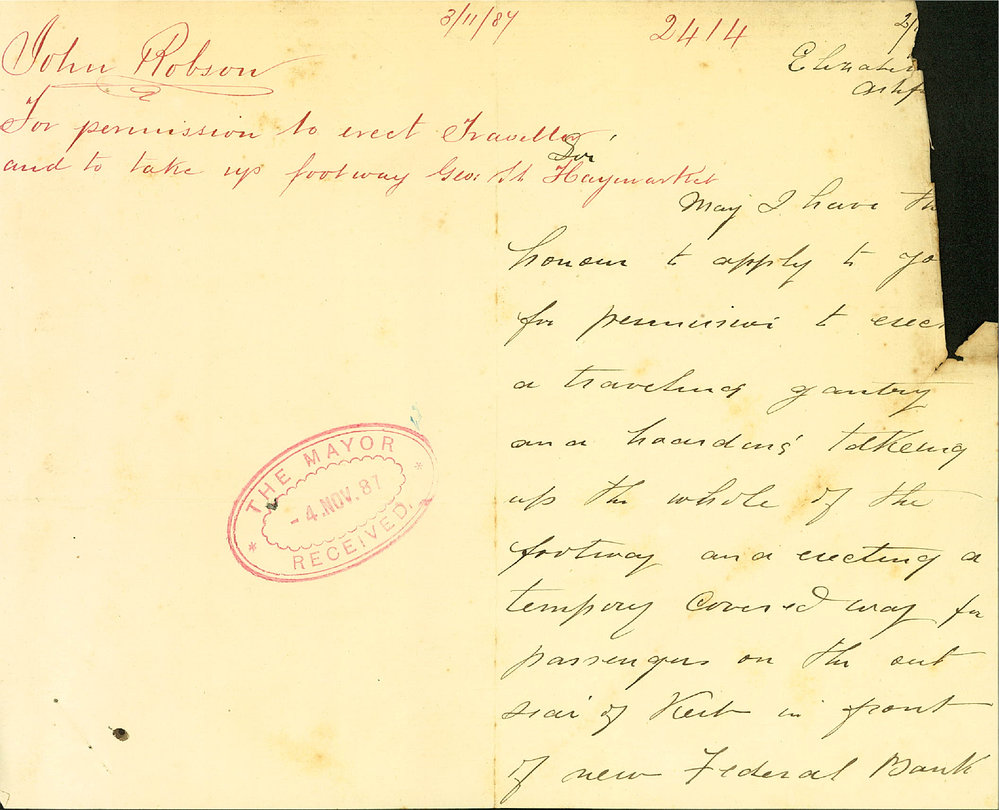 3/11/87
2414
John Robson
For permission to erect Traveller
and to take up footway Geo: St Haymarket
THE MAYOR
-4.NOV.87
RECEIVED.
Elizabe
Ashf
Sir
May I have th
honour to apply to yo
for permission to erec
a traveling gantry
and hoarding takeing
up the whole of the
footway and erecting a
tempory Covered way for
passengers on the out
side of Kerb in front
of new Federal Bank